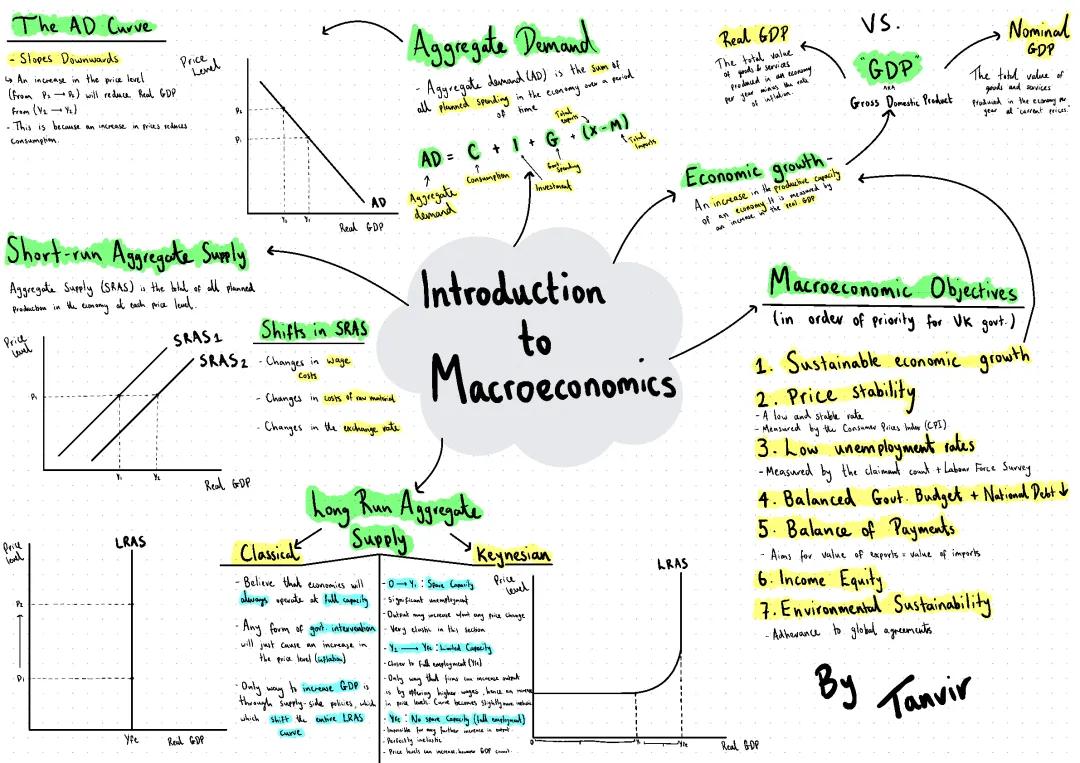 The AD Curve
- Slopes Downwards
↳ An increase in the price level
(from P1 → P2) will reduce Real GDP
from (Y1 → Y2)
- This is because an increase in prices reduces
consumption.
Price
Level
P2
P1
Y2 Y1
AD
Real GDP
Aggregate Demand
- Aggregate demand (AD) is the sum of
all planned spending in the economy over a period
of time
AD = C + I + G + (X-M)
Aggregate
demand
Consumption
Investment
Govt. Spending
Total
exports
Total
Imports
Real GDP
The total value
of goods & services
produced in an economy
per year minus the rate
of inflation.
VS.
"GDP"
AKA
Gross Domestic Product
Nominal
GDP
The total value of
goods and services
produced in the economy per
year at "current prices."
Economic growth-
An increase in the productive capacity
of an economy. It is measured by
an increase in the real GDP
Short-run Aggregate Supply
Aggregate Supply (SRAS) is the total of all planned
production in the economy at each price level.
Price
level
SRAS1
SRAS2
P1
Y1 Y2
Real GDP
Shifts in SRAS
- Changes in wage
costs
- Changes in costs of raw material
- Changes in the exchange rate
Introduction
to
Macroeconomics
Macroeconomic Objectives
(in order of priority for UK govt.)
1. Sustainable economic growth
2. Price stability
- A low and stable rate
- Measured by the Consumer Prices Index (CPI)
3. Low unemployment rates
- Measured by the claimant count + Labour Force Survey
4. Balanced Govt. Budget + National Debt ↓
5. Balance of Payments
- Aims for value of exports = value of imports
6. Income Equity
7. Environmental Sustainability
- Adherance to global agreements
By Tanvir
Long Run Aggregate
Supply
Classical
Keynesian
Price
level
LRAS
P2
P1
YFE
Real GDP
- Believe that economies will
always operate at full capacity
- Any form of govt. intervention
will just cause an increase in
the price level (inflation)
- Only way to increase GDP is
through supply-side policies, which
which shift the entire LRAS
curve
- O → Y1 : Spare Capacity
- Significant unemployment
- Output may increase w/out any price change
- Very elastic in this section
- Y1 → YFE : Limited Capacity
- Closer to full employment (YFE)
- Only way that firms can increase output
is by offering higher wages, hence an increase
in price levels. Curve becomes slightly more
- YFE : No spare Capacity (full employment)
- Impossible for any further increase in output.
- Perfectly inelastic
- Price levels can increase, however GDP cannot.
Price
Level
LRAS
O
Y1
YFE
Real GDP